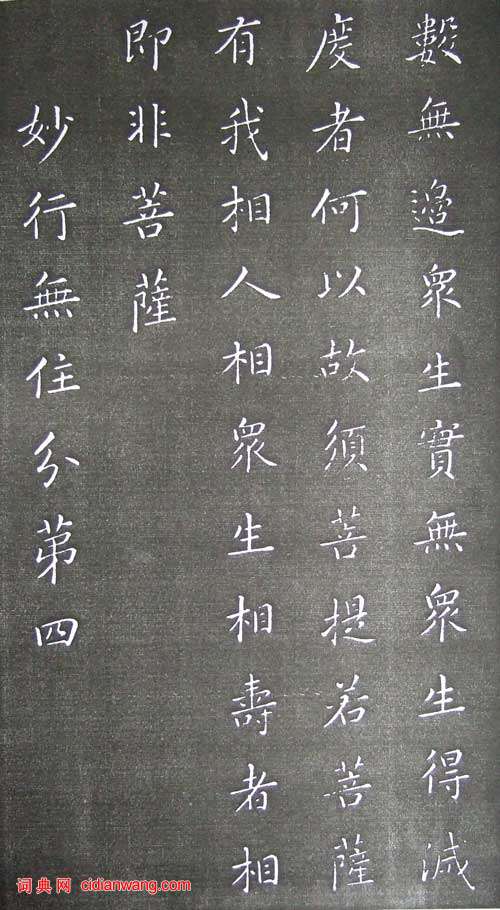 數無邊眾生實無眾生得滅
度者何以故須菩提若菩薩
有我相人相眾生相壽者相
即非菩薩
妙行無住分苐四
词典网 cidianwang.com